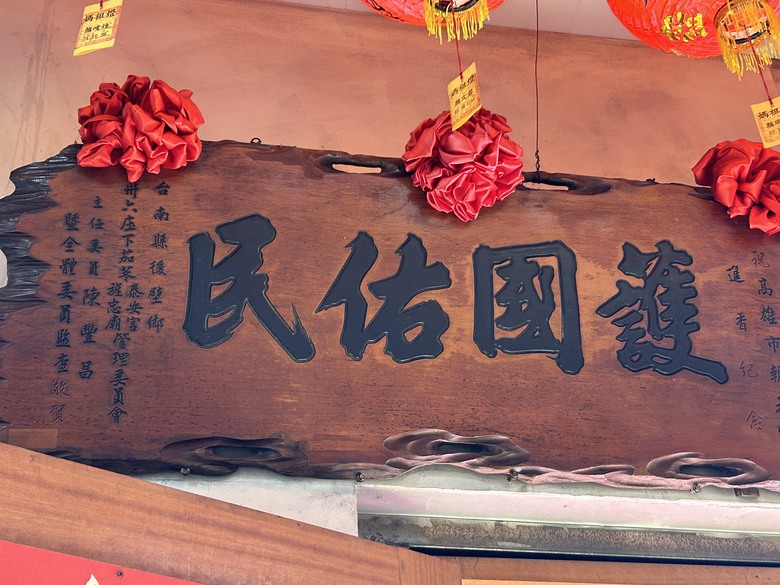 祝高雄市朝
進香紀念
護國佑民
台南縣後壁鄉
卅六庄下茄苳泰安宮旌忠廟管理委員會
主任委員陳豐昌
暨全體委員監查敬賀
媽祖燈
媽祖燈
媽祖燈